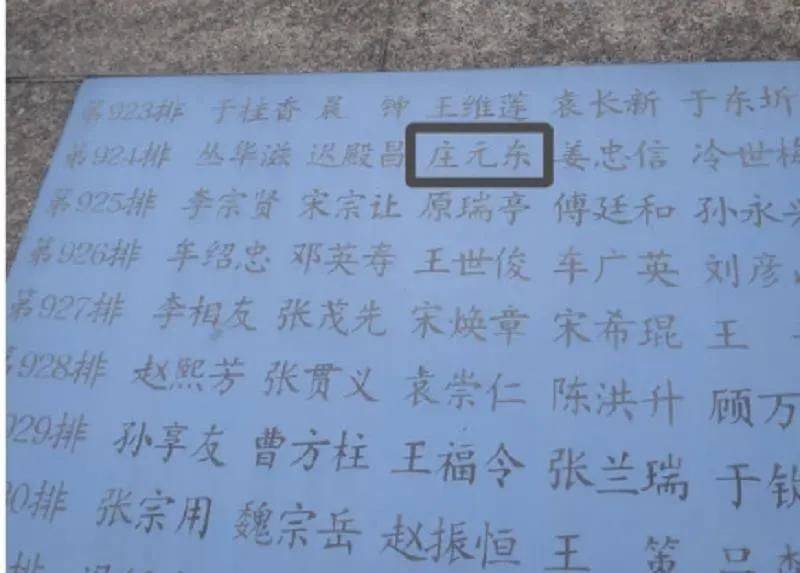 第923排 于桂香 晨 钟 王维莲 袁长新 于东圻
第924排 丛华滋 迟殿昌 庄元东 姜忠信 冷世梅
第925排 李宗贤 宋宗让 原瑞亭 傅廷和 孙永兴
第926排 牟绍忠 邓英寿 王世俊 车广英 刘彦
第927排 李相友 张茂先 宋焕章 宋希琨 王
928排 赵熙芳 张贯义 袁崇仁 陈洪升 顾万
929排 孙享友 曹方柱 王福令 张兰瑞 于钦
30排 张宗用 魏宗岳 赵振恒 王 第 吕
排